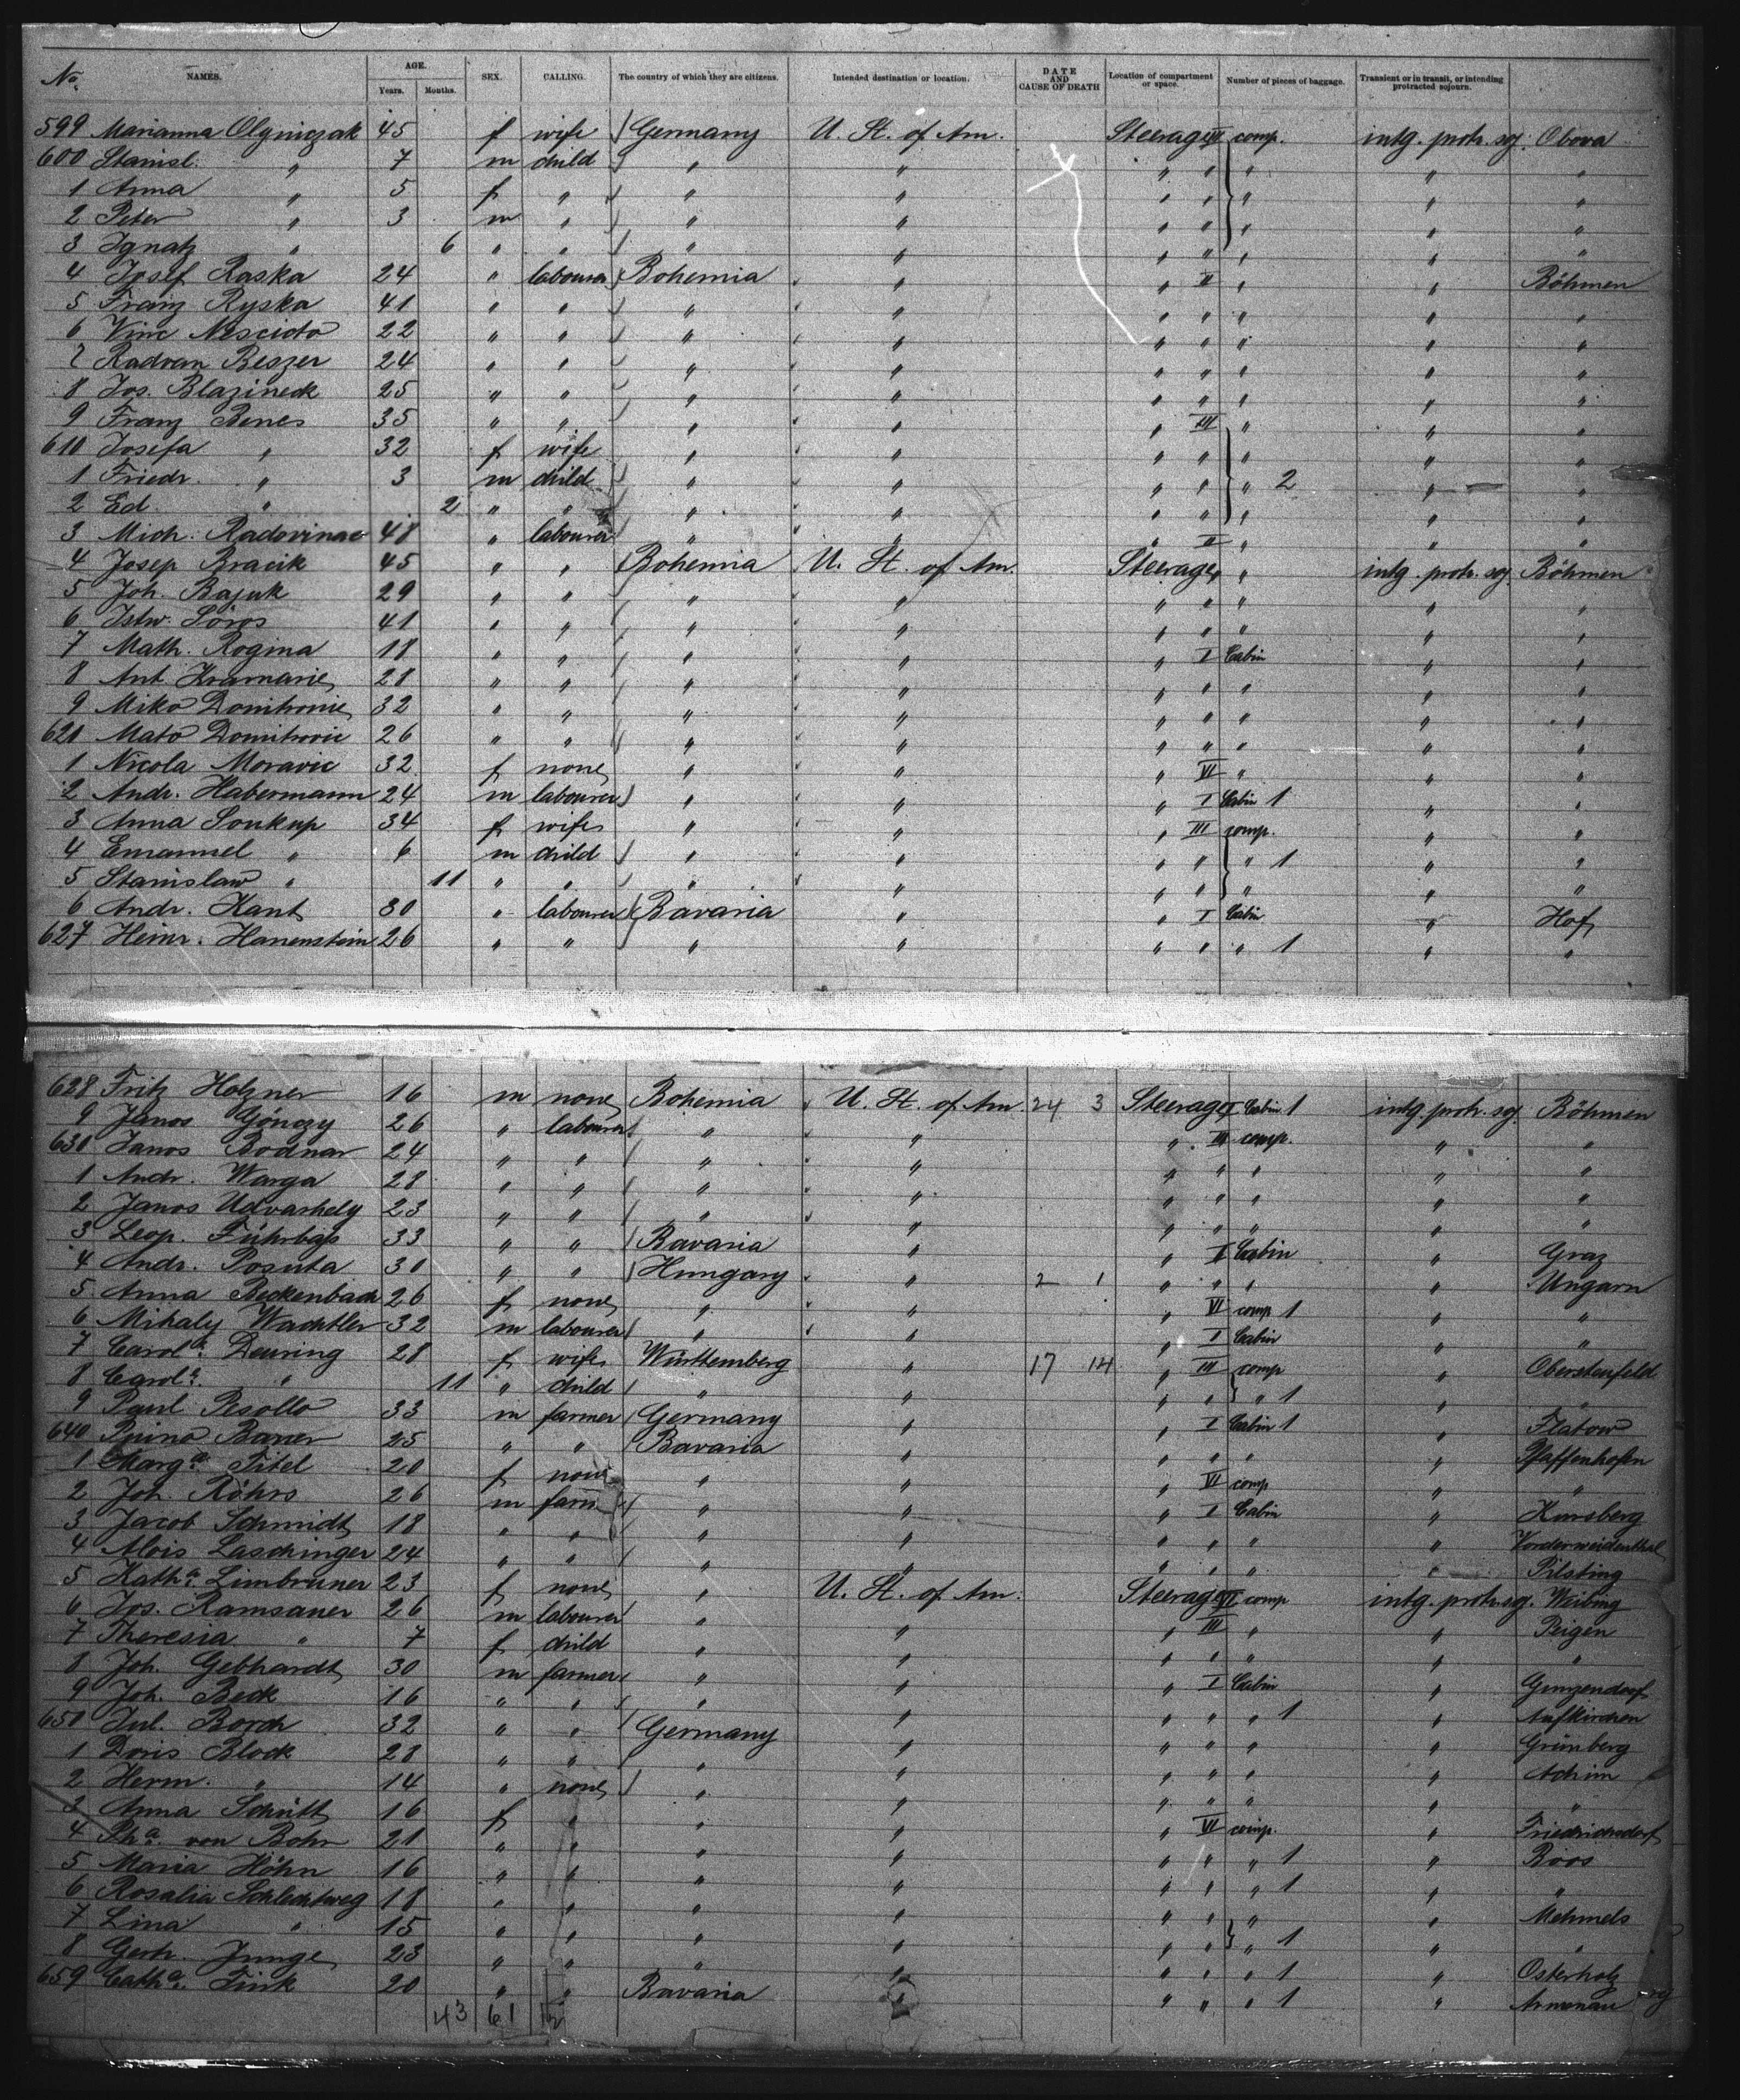 No. NAMES. AGE. Years. Months. SEX. CALLING. The country of which they are citizens. Intended destination or location. DATE AND CAUSE OF DEATH Location of compartment or space. Number of pieces of baggage. Transient or in transit, or intending protracted sojourn.
599 Marianna 45 f wife Germany U. St. of Am. Steerage VI comp. intg. protr. soj. Obova
600 Stanisl. " 7 m child " " " " " " "
1 Anna " 5 f " " " " " " " "
2 Peter " 3 m " " " " " " " "
3 Ignatz " 6 " " " " " " " " "
4 Josef Raska 24 " labourer Bohemia " " II " " Böhmen
5 Franz Ryska 41 " " " " " " " " "
6 Vinc Nesciota 22 " " " " " " " " "
7 Radvan Beszer 24 " " " " " " " " "
8 Jos. Blazineck 25 " " " " " " " " "
9 Franz Benes 35 " " " " " III " " "
610 Josefa " 32 f wife " " " " " " "
1 Friedr. " 3 m child " " " " " 2 " "
2 Ed. " 2 " " " " " " " " "
3 Mich. Radovinac 48 " labourer " " " II " " "
4 Josep Bracik 45 " " Bohemia U. St. of Am. Steerage " " intg. protr. soj. Böhmen
5 Joh. Bajuk 29 " " " " " " " " "
6 Istw. Söros 41 " " " " " " " " "
7 Math. Rogina 18 " " " " " I Cabin " "
8 Ant. Kramaric 28 " " " " " " " " "
9 Miko Domitrovic 32 " " " " " " " " "
620 Mato Domitrovic 26 " " " " " " " " "
1 Nicola Moravic 32 f none " " " VI " " "
2 Andr. Habermann 24 m labourer " " " I Cabin 1 " "
3 Anna Soukup 34 f wife " " " III comp. " "
4 Emanuel " 6 m child " " " " " 1 " "
5 Stanislaw " 11 " " " " " " " " "
6 Andr. Kant 30 " labourer Bavaria " " I Cabin " Hof
627 Heinr. Hanenstein 26 " " " " " " " 1 " "
628 Fritz Holzner 16 m none Bohemia U. St. of Am. 24 3 Steerage I Cabin 1 intg. protr. soj. Böhmen
9 Janos Gönczy 26 " labourer " " " III comp. " "
630 Janos Bodnar 24 " " " " " " " " "
1 Andr. Warga 28 " " " " " " " " "
2 Janos Udvarhely 23 " " " " " " " " "
3 Leop. Führbass 33 " " Bavaria " " I Cabin " Graz
4 Andr. Posuta 30 " " Hungary " 2 1 " " " " Ungarn
5 Anna Beckenbach 26 f none " " " VI comp 1 " "
6 Mihaly Wachtler 32 m labourer " " " I Cabin " "
7 Carola. Deuring 28 f wife Württemberg " 17 14 " III comp " Oberstenfeld
8 Carola. " 11 " child " " " " " 1 " "
9 Paul Pesollo 33 m farmer Germany " " I Cabin 1 " Flatow
640 Bauer 25 " " Bavaria " " " " " Pfaffenhofen
1 Marga. Titel 20 f none " " " VI comp " "
2 Joh. Röhrs 26 m farm " " " I Cabin " Karsberg
3 Jacob Schmidt 18 " " " " " " " " Vorderweidenthal
4 Alois Laschinger 24 " " " " " " " " Pilsting
5 Katha. Limbruner 23 f none " U. St. of Am. Steerage VI comp intg. protr. soj. Weibing
6 Jos. Ramsauer 26 m labourer " " " III " " Peigen
7 Theresia " 7 f child " " " " " " "
8 Joh. Gebhardt 30 m farmer " " " I Cabin " Gunzendorf
9 Joh. Beck 16 " " " " " " " 1 " Aufkirchen
650 Jul. Borch 32 " " Germany " " " " " Grünberg
1 Doris Block 28 " " " " " " " " Achim
2 Herm. " 14 " none " " " " " " "
3 Anna Schütt 16 f " " " " VI comp. " Friedrichsdorf
4 von Bohr 21 " " " " " " " 1 " Roos
5 Maria Höhn 16 " " " " " " " 1 " "
6 Rosalia Schlechtweg 18 " " " " " " " " Mehmels
7 Lina " 15 " " " " " " " 1 " "
8 Gerh. Junge 23 " " " " " " " 1 " Osterholz
659 Catha. Fink 20 " " Bavaria " " " " 1 " Armenau
43 61 12